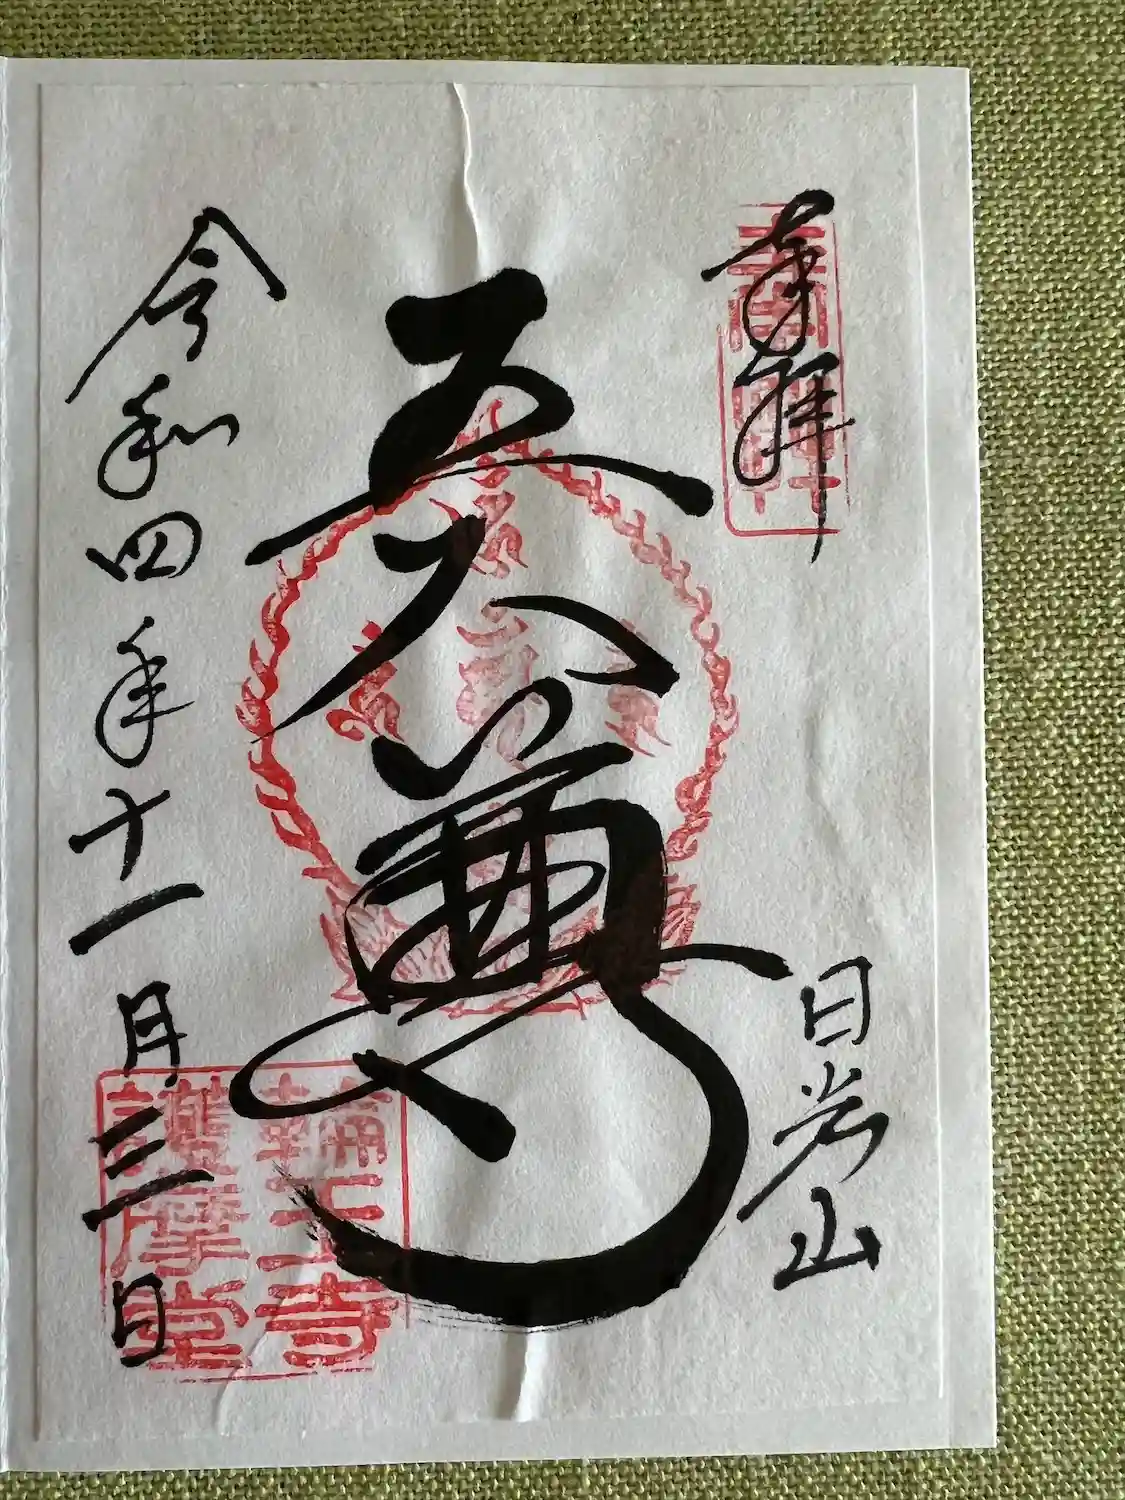 奉拝
日光山
五大尊
令和四年十一月三日
輪王寺
護摩堂